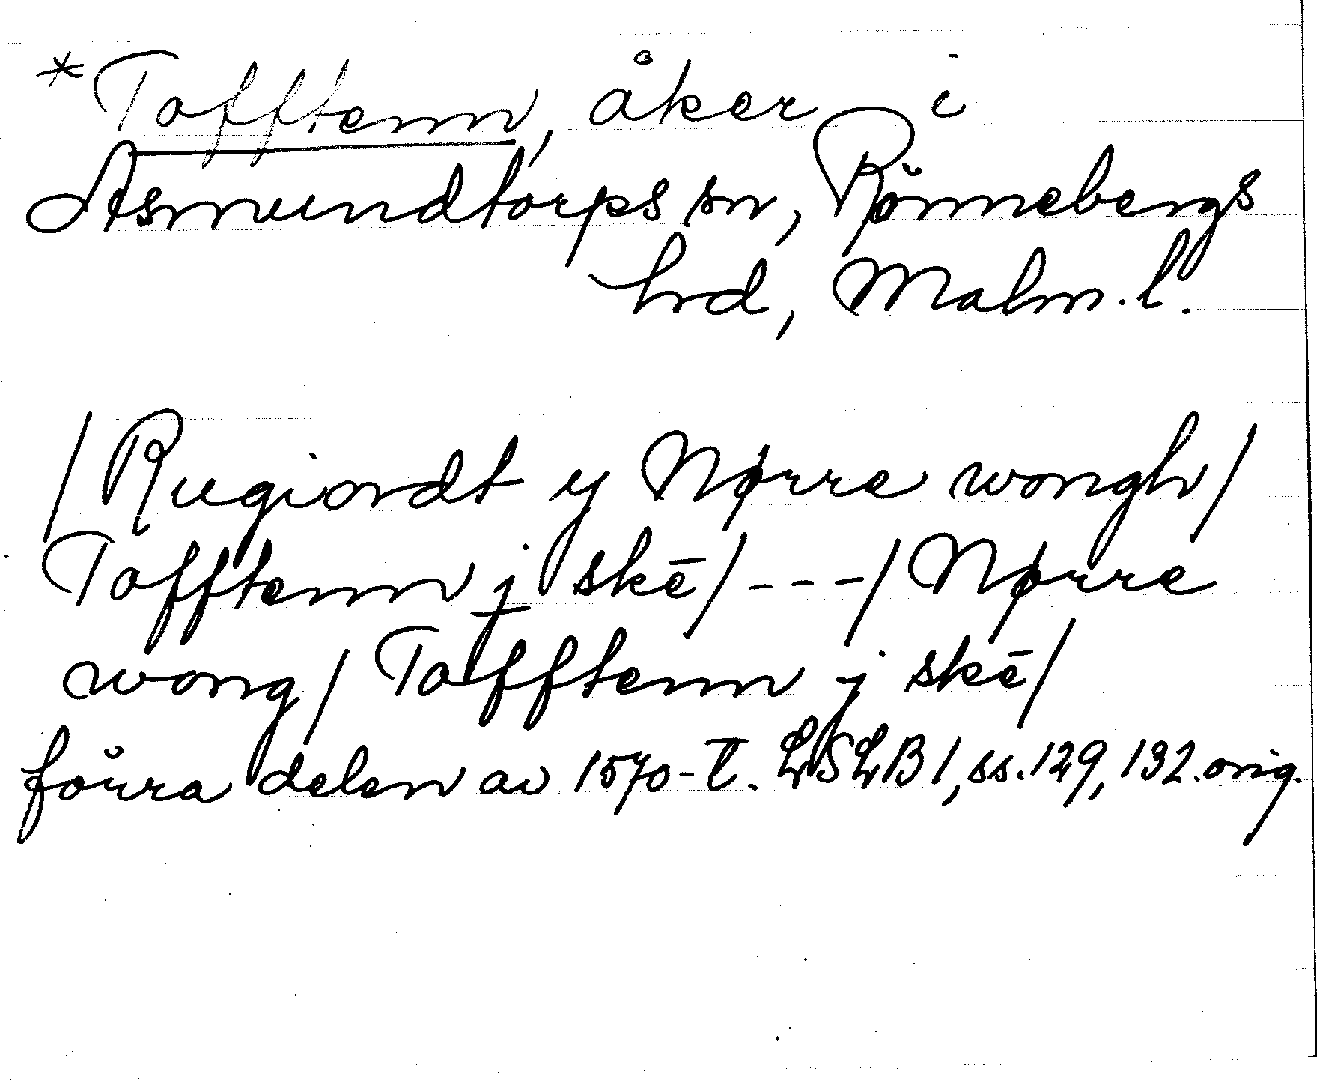 *Tofftenn, åker i
Asmundtorps sn, Rönnebergs
hrd, Malm. l.
/Rugiordt y Nørre wongh/
Tofftenn j skē/---/Nørre
wong/ Tofftenn j skē/
förra delen av 1570-t. LSLB 1, ss. 129, 132. orig.